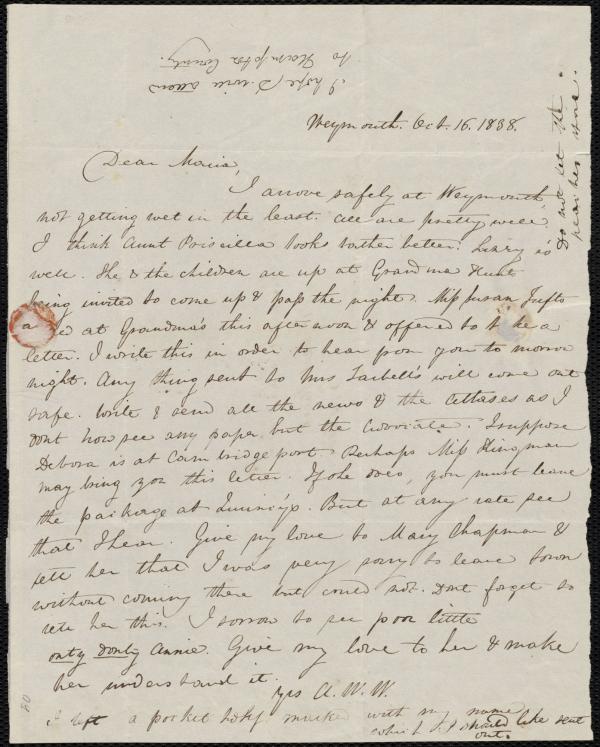 I hope D. will attend
to Hampton County.
Weymouth. Oct. 16. 1838.
Dear Maria,
I arrove safely at Weymouth,
not getting wet in the least. All are pretty well
I think Aunt Priscilla looks rather better. Lizzy is
well. She & the children are up at Grandma Hunt
being invited to come up & pass the night. Miss Susan Tufts
at Grandma's this afternoon & offered to take a
letter. I write this in order to hear from you to morrow
night. Any thing sent to Mrs Tarbell's will come out
safe. Write & send all the news & the as I
dont now see any paper but the . I suppose
Debora is at Cambridgeport. Perhaps Miss Kingman
may bring you this letter. If she does, you must leave
the package at Quincy's. But at any rate see
that I hear. Give my love to Mary Chapman &
tell her that I was very sorry to leave town
without coming there but could not. Dont forget to
tell her this. I sorrow to see poor little
only donly Annie. Give my love to her & make
her understand it.
Yrs A. W. W.
I left a pocket hdkf marked with my name
which I should like sent
out.
Do not let the
near her stove.